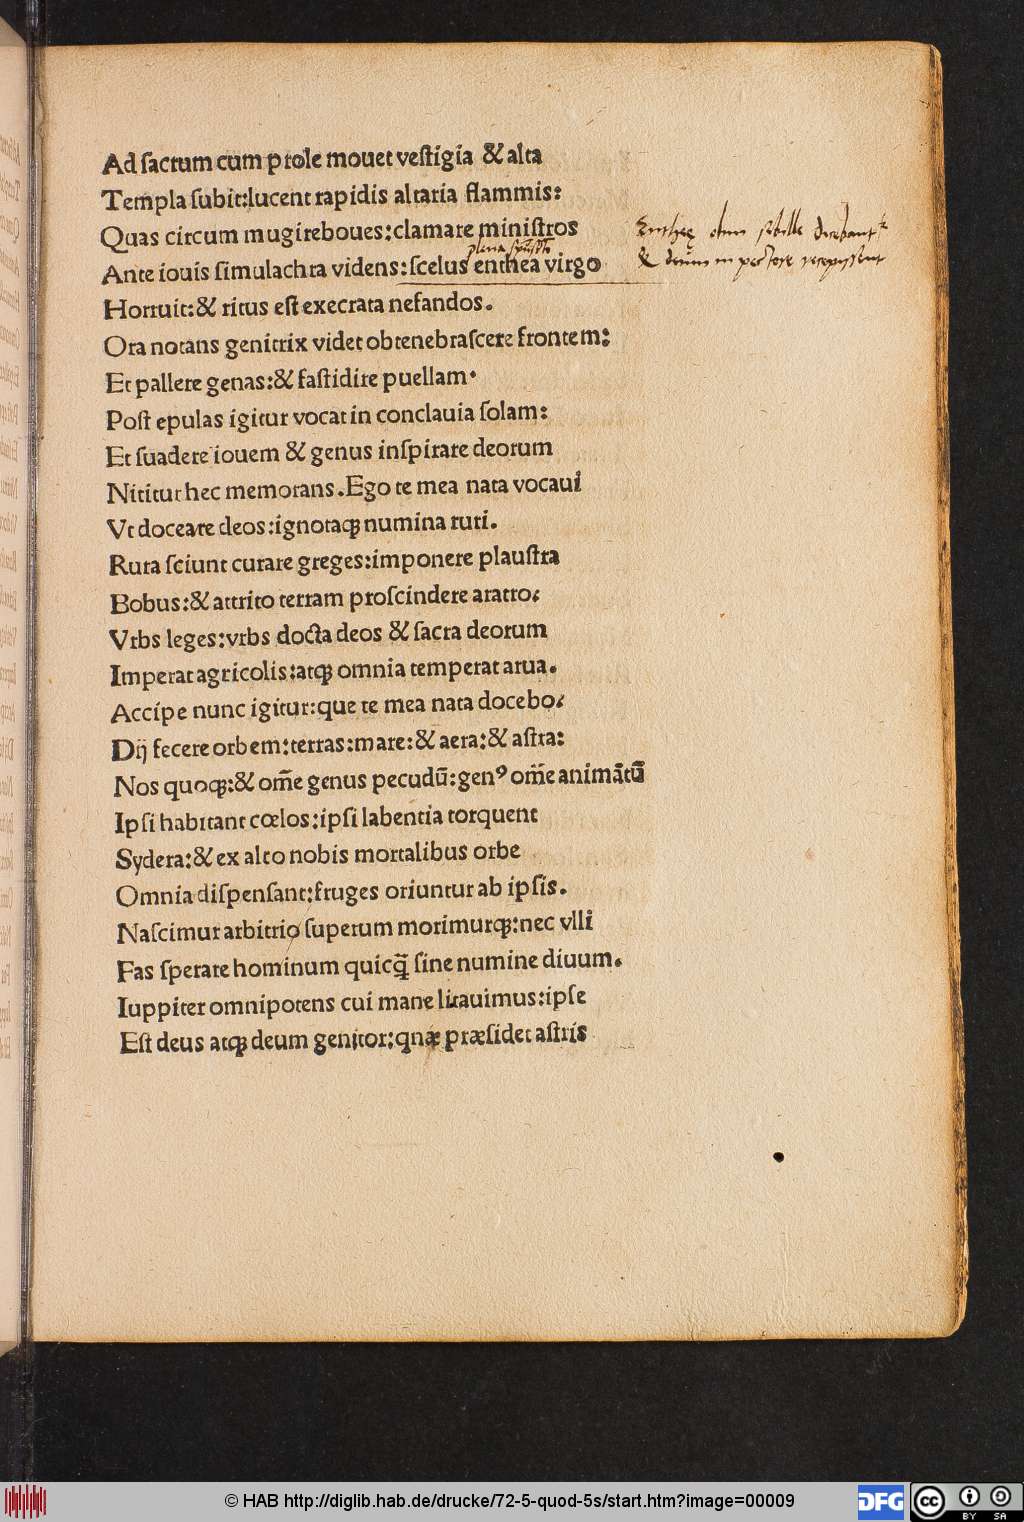 Ad sacrum cum prole mouet vestigia & alta
Templa subit:lucent rapidis altaria flammis:
Quas circum mugireboues:clamare ministros
plena
Ante iouis simulachra videns:scelus enthea virgo
Entheę olim sibille dicebant
& deum in pectore
Horruit:& ritus est execrata nefandos.
Ora notans genitrix videt obtenebrascere frontem:
Et pallere genas:& fastidire puellam.
Post epulas igitur vocat in conclauia solam:
Et suadere iouem & genus inspirare deorum
Nititur hec memorans.Ego te mea nata vocaui
Vt doceare deos:ignotaqꝫ numina ruri.
Rura sciunt curare greges:imponere plaustra
Bobus:& attrito terram proscindere aratro:
Vrbs leges:vrbs docta deos & sacra deorum
Imperat agricolis:atqꝫ omnia temperat arua.
Accipe nunc igitur:que te mea nata docebo:
Dij fecere orbem:terras:mare:& aera:& astra:
Nos quoqꝫ:& om̄e genus pecudū:genꝰ om̄e animātū
Ipsi habitant cœlos:ipsi labentia torquent
Sydera:& ex alto nobis mortalibus orbe
Omnia dispensant:fruges oriuntur ab ipsis.
Nascimur arbitrio superum morimurqꝫ:nec vlli
Fas sperare hominum quicqꝫ̄ sine numine diuum.
Iuppiter omnipotens cui mane litauimus:ipse
Est deus atqꝫ deum genitor:qnæ præsidet astris
© HAB http://diglib.hab.de/drucke/72-5-quod-5s/start.htm?image=00009
DFG
cc
BY SA